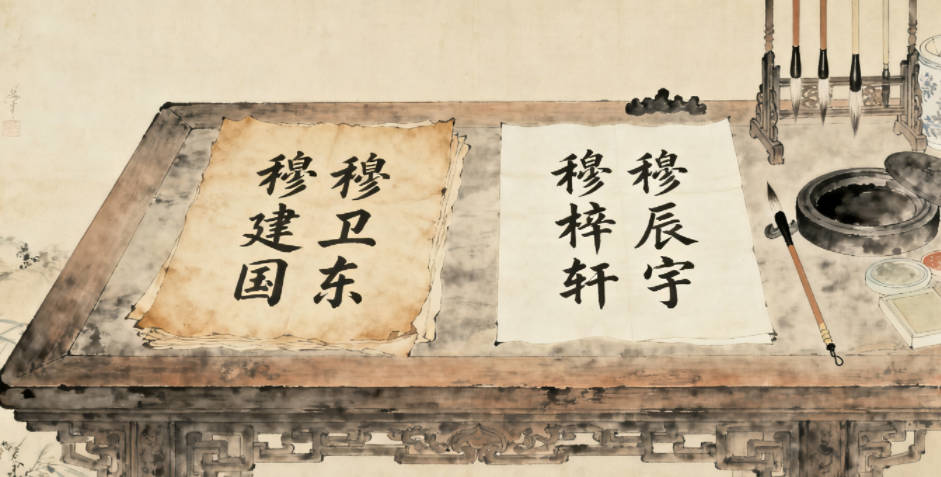 穆卫东
穆建国
穆辰宇
穆梓轩